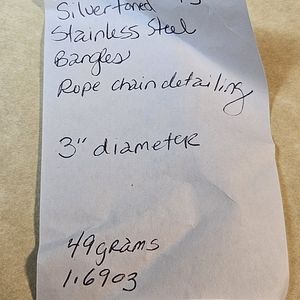 Silvertoned
Stainless Steel
Bangles
Rope chain detailing
3" diameter
49grams
1.69oz